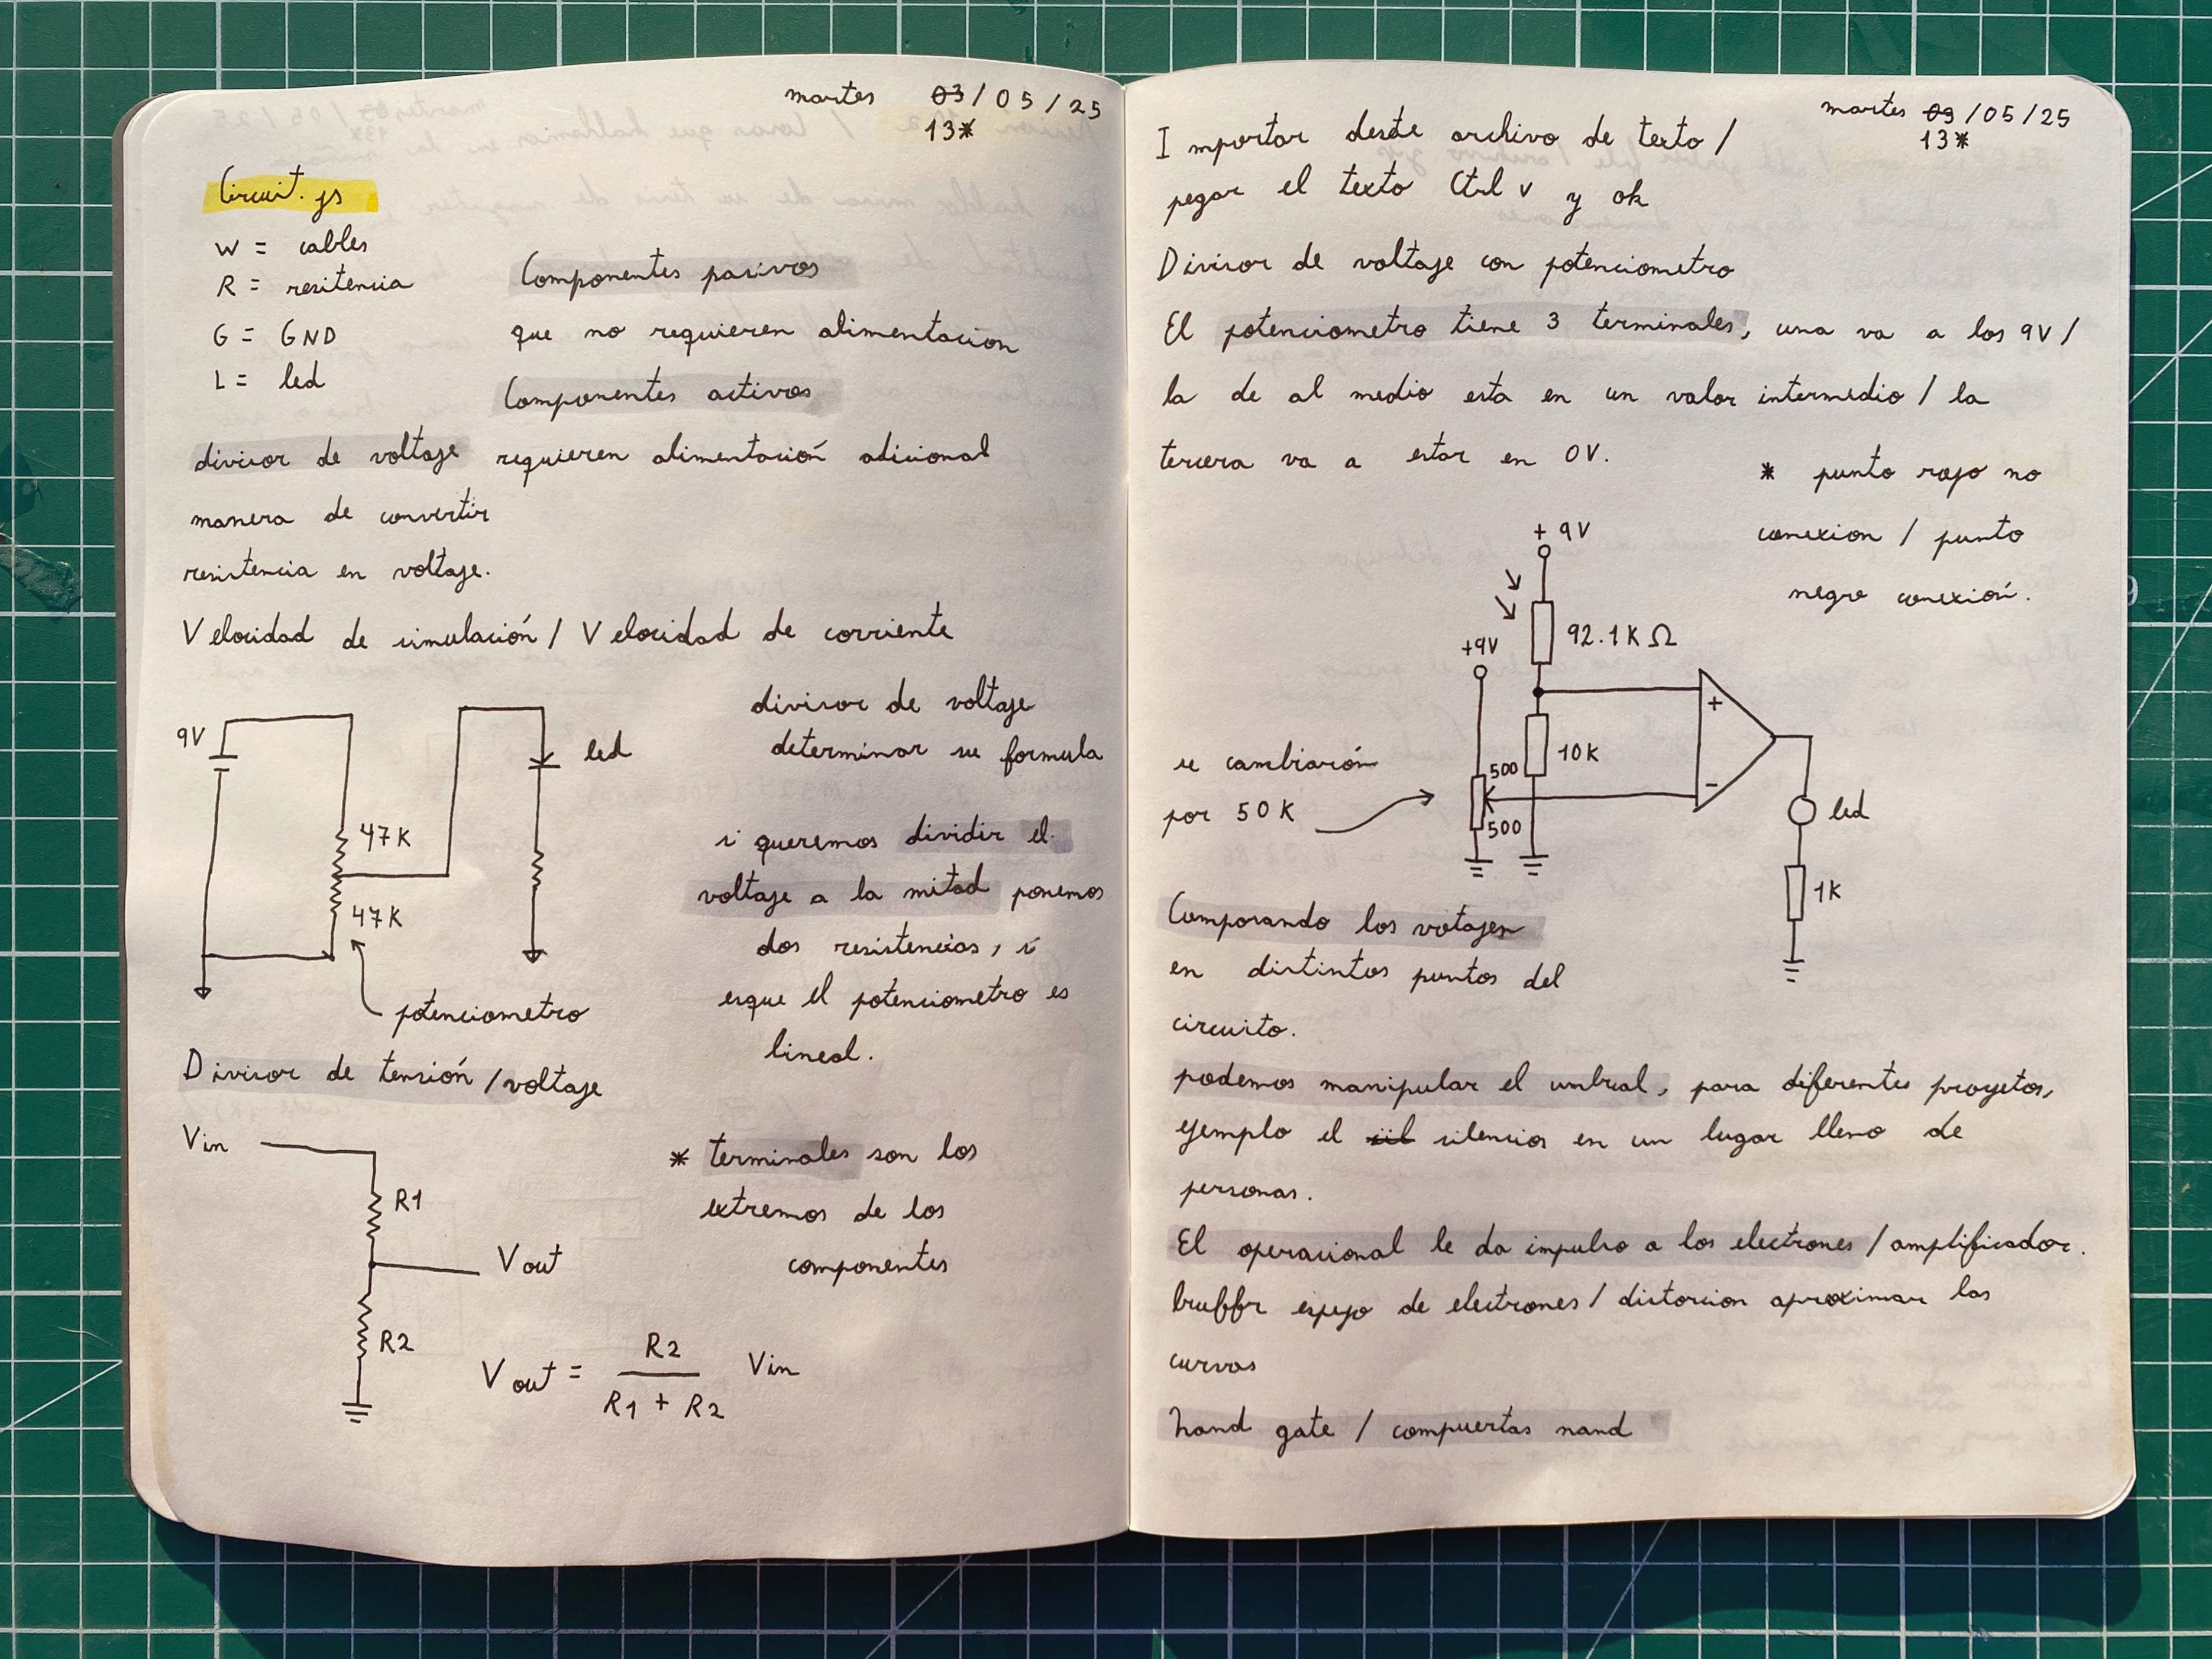 martes 03/05/25
13*
Circuit.js
W = cables
R = resitencia
G = GND
L = led
Componentes pasivos
que no requieren alimentacion
Componentes activos
requieren alimentación adicional
divisor de voltaje
manera de convertir
resistencia en voltaje.
Velocidad de simulación / Velocidad de corriente
9V
47K
47K
led
potenciometro
divisor de voltaje
determinar su formula
si queremos dividir el
voltaje a la mitad ponemos
dos resistencias, si
esque el potenciometro es
lineal.
Divisor de tensión / voltaje
Vin
R1
Vout
R2
Vout = R2 / R1 + R2 Vin
* terminales son los
extremos de los
componentes
martes 03/05/25
13*
Importar desde archivo de texto /
pegar el texto Ctrl v y ok
Divisor de voltaje con potenciometro
El potenciometro tiene 3 terminales, una va a los 9V /
la de al medio esta en un valor intermedio / la
tercera va a estar en 0V.
* punto rojo no
conexion / punto
negro conexión.
+ 9V
92.1K Ω
+9V
+
10K
500
-
500
led
1K
se cambiarón
por 50K
Comparando los votajes
en distintos puntos del
circuito.
podemos manipular el umbral, para diferentes proyetos,
ejemplo el sil silencios en un lugar lleno de
personas.
El operacional le da impulso a los electrones / amplificador.
bruffr espejo de electrones / distorcion aproximar las
curvas
hand gate / compuertas nand